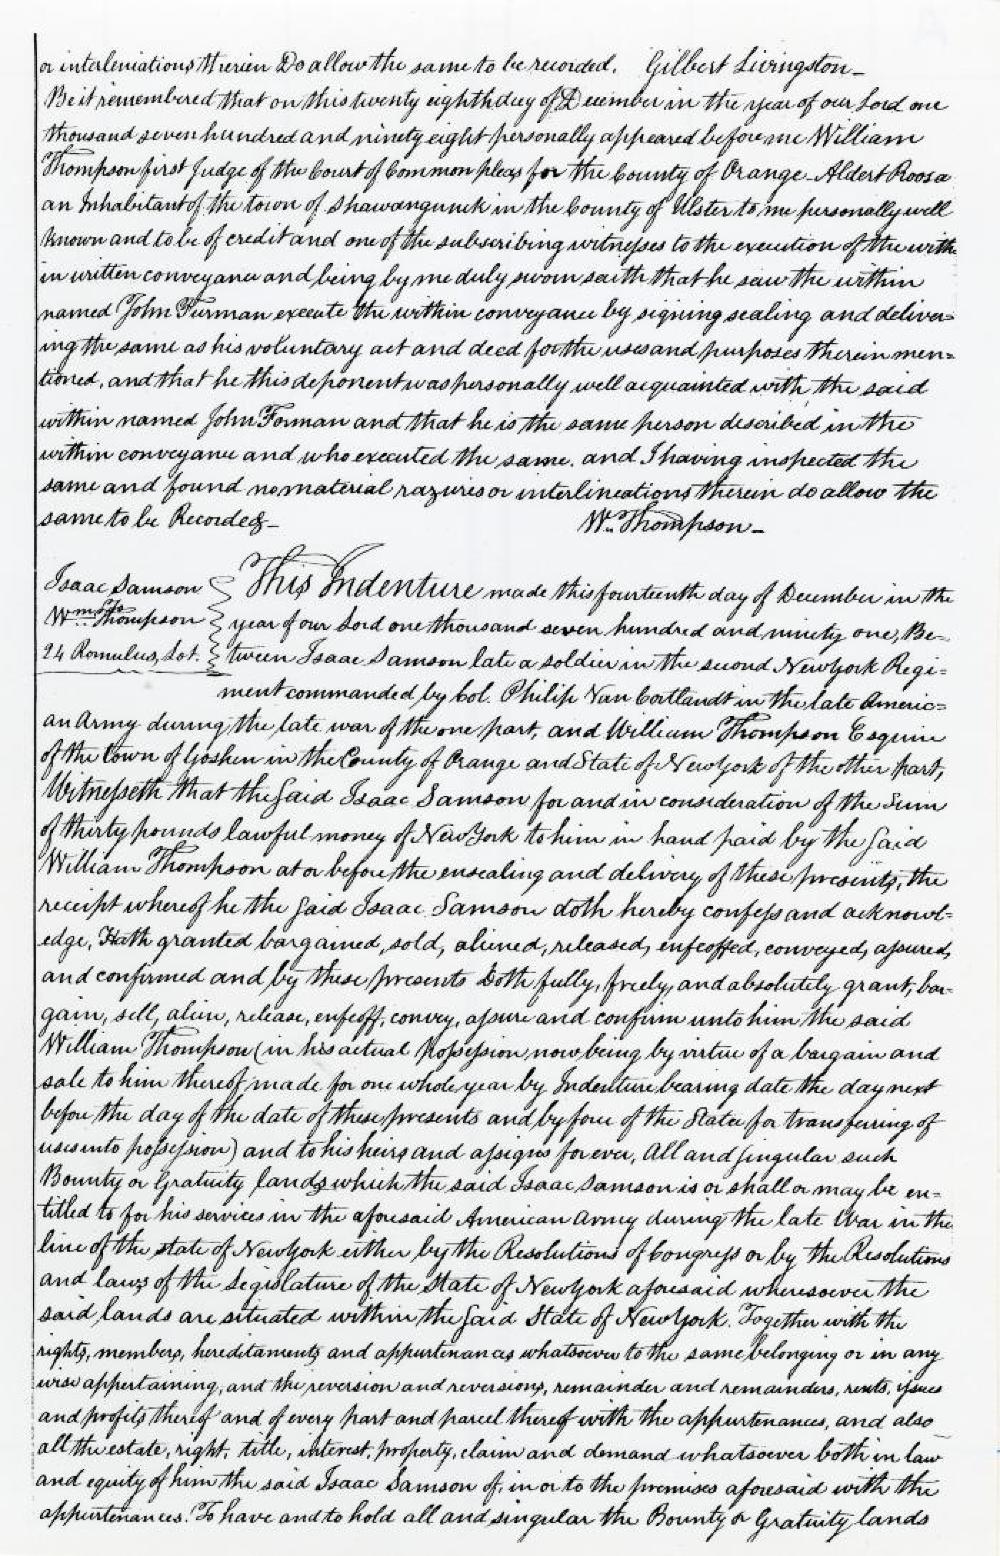 or interleniations therien Do allow the same to be recorded. Gilbert Livingston_
Be it remembered that on this twenty eighth day of December in the year of our Lord one
thousand seven hundred and ninety eight personally appeared before me William
Thompson first Judge of the Court of Common pleas for the County of Orange Aldert Roosa
an Inhabitant of the town of Shawangunck in the County of Ulster to me personally well
known and to be of credit and one of the subscribing witnesses to the execution of the with
in written conveyance and being by me duly sworn saith that he saw the within
named John Furman execute the within conveyance by signing sealing and deliver=
ing the same as his voluntary act and deed for the uses and purposes therein men=
tioned, and that he this deponent was personally well acquainted with the said
within named John Forman and that he is the same person described in the
within conveyance and who executed the same. and I having inspected the
same and found no material razures or interlineations therein do allow the
same to be Recorded_ Wm. Thompson_
Isaac Samson
Wm. Thompson
24 Romulus, Lot.
This Indenture made this fourteenth day of December in the
year of our Lord one thousand seven hundred and ninety one, Be=
tween Isaac Samson late a soldier in the second New York Regi=
ment commanded by Col. Philip Van Cortlandt in the late Americ=
an Army during the late war of the one part, and William Thompson Esquire
of the town of Goshen in the County of Orange and State of New York of the other part,
Witnesseth that the said Isaac Samson for and in consideration of the Sum
of thirty pounds lawful money of New York to him in hand paid by the said
William Thompson at or before the ensealing and delivery of these presents, the
receipt whereof he the said Isaac Samson doth hereby confess and acknowl=
edge, Hath granted bargained, sold, aliened, released, enfeoffed, conveyed, assured,
and confirmed and by these presents Doth fully, freely, and absolutely grant, bar=
gain, sell, alien, release, enfeoff, convey, assure and confirm unto him the said
William Thompson (in his actual Possession now being by virtue of a bargain and
sale to him thereof made for one whole year by Indenture bearing date the day next
before the day of the date of these presents and by force of the Statee for transferring of
uses into possession) and to his heirs and assigns for ever, All and singular such
Bounty or Gratuity lands which the said Isaac Samson is or shall or may be en=
titled to for his services in the aforesaid American Army during the late War in the
line of the state of New York either by the Resolutions of Congress or by the Resolutions
and laws of the Legislature of the State of New York aforesaid wheresoever the
said lands are situated within the said State of New York. Together with the
rights, members, hereditaments and appurtenances whatsoever to the same belonging or in any
wise appertaining, and the reversion and reversions, remainder and remainders, rents, issues
and profits thereof and of every part and parcel thereof with the appurtenances, and also
all the estate, right, title, interest, property, claim and demand whatsoever both in law
and equity of him the said Isaac Samson of, in or to the premises aforesaid with the
appurtenances. To have and to hold all and singular the Bounty or Gratuity lands